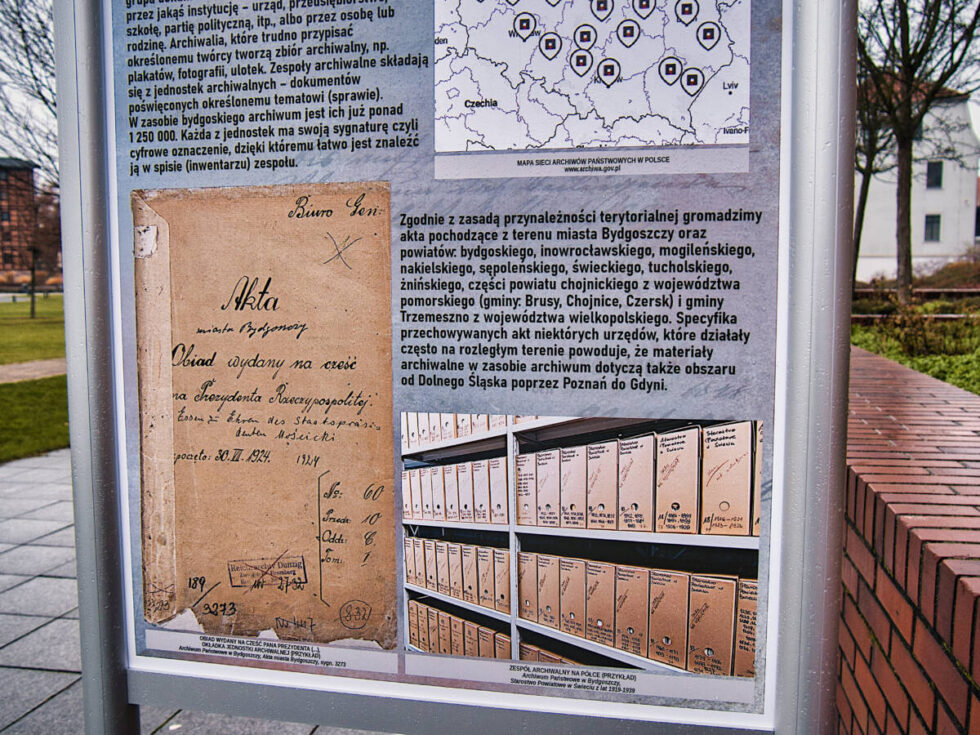 przez jakąś instytucję – urząd, przedsiębiorstwo,
szkołę, partię polityczną, itp., albo przez osobę lub
rodzinę. Archiwalia, które trudno przypisać
określonemu twórcy tworzą zbiór archiwalny, np.
plakatów, fotografii, ulotek. Zespoły archiwalne składają
się z jednostek archiwalnych – dokumentów
poświęconych określonemu tematowi (sprawie).
W zasobie bydgoskiego archiwum jest ich już ponad
1 250 000. Każda z jednostek ma swoją sygnaturę czyli
cyfrowe oznaczenie, dzięki któremu łatwo jest znaleźć
ją w spisie (inwentarzu) zespołu.
Czechia
Lviv
MAPA SIECI ARCHIWÓW PAŃSTWOWYCH W POLSCE
www.archiwa.gov.pl
Zgodnie z zasadą przynależności terytorialnej gromadzimy
akta pochodzące z terenu miasta Bydgoszczy oraz
powiatów: bydgoskiego, inowrocławskiego, mogileńskiego,
nakielskiego, sępoleńskiego, świeckiego, tucholskiego,
żnińskiego, części powiatu chojnickiego z województwa
pomorskiego (gminy: Brusy, Chojnice, Czersk) i gminy
Trzemeszno z województwa wielkopolskiego. Specyfika
przechowywanych akt niektórych urzędów, które działały
często na rozległym terenie powoduje, że materiały
archiwalne w zasobie archiwum dotyczą także obszaru
od Dolnego Śląska poprzez Poznań do Gdyni.
Biuro Gen:
Akta
miasta Bydgoszczy
Obiad wydany na cześć
na Prezydenta Rzeczypospolitej.
Essen zu Ehren des Staatspräsi-
denten Mościcki
1924
No: 60
10
1
Reichsarchiv Danzig
189
3273
832
OBIAD WYDANY NA CZEŚĆ PANA PREZYDENTA (...),
OKŁADKA JEDNOSTKI ARCHIWALNEJ (PRZYKŁAD)
Archiwum Państwowe w Bydgoszczy, Akta miasta Bydgoszczy, sygn. 3273
ZESPÓŁ ARCHIWALNY NA PÓŁCE (PRZYKŁAD)
Archiwum Państwowe w Bydgoszczy,
Starostwo Powiatowe w Świeciu z lat 1919-1939